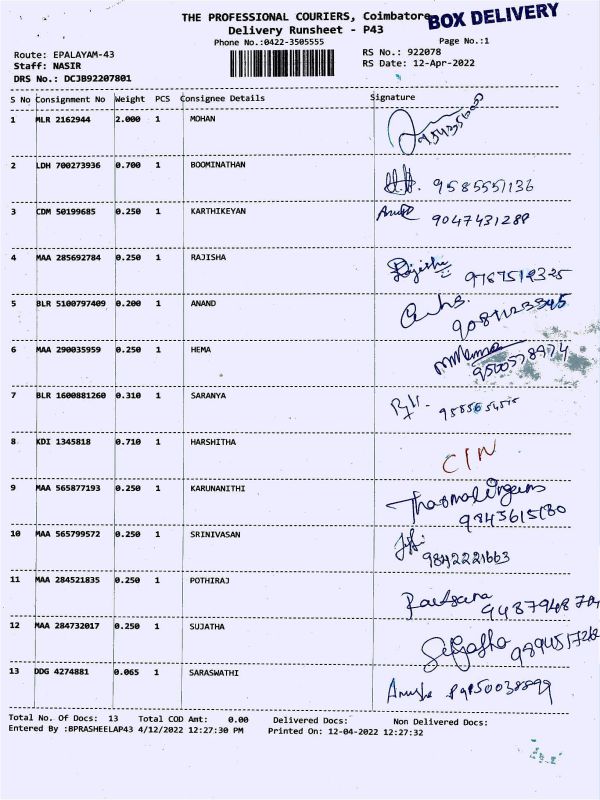 THE PROFESSIONAL COURIERS, Coimbatore
BOX DELIVERY
Delivery Runsheet - P43
Phone No.:0422-3505555
Page No.:1
Route: EPALAYAM-43
RS No.: 922078
Staff: NASIR
RS Date: 12-Apr-2022
DRS No.: DCJB92207801
S No Consignment No Weight PCS Consignee Details Signature
1 MLR 2162944 2.000 1 MOHAN
2 LDH 700273936 0.700 1 BOOMINATHAN
9585551136
3 CDM 50199685 0.250 1 KARTHIKEYAN
9047431288
4 MAA 285692784 0.250 1 RAJISHA
Rajisha
5 BLR 5100797409 0.200 1 ANAND
6 MAA 290035959 0.250 1 HEMA
9500578974
7 BLR 1600881260 0.310 1 SARANYA
8 KDI 1345818 0.710 1 HARSHITHA
CIN
9 MAA 565877193 0.250 1 KARUNANITHI
9843615180
10 MAA 565799572 0.250 1 SRINIVASAN
9842221663
11 MAA 284521835 0.250 1 POTHIRAJ
12 MAA 284732017 0.250 1 SUJATHA
Sujatha
13 DDG 4274881 0.065 1 SARASWATHI
Total No. Of Docs: 13 Total COD Amt: 0.00 Delivered Docs: Non Delivered Docs:
Entered By :BPRASHEELAP43 4/12/2022 12:27:30 PM Printed On: 12-04-2022 12:27:32